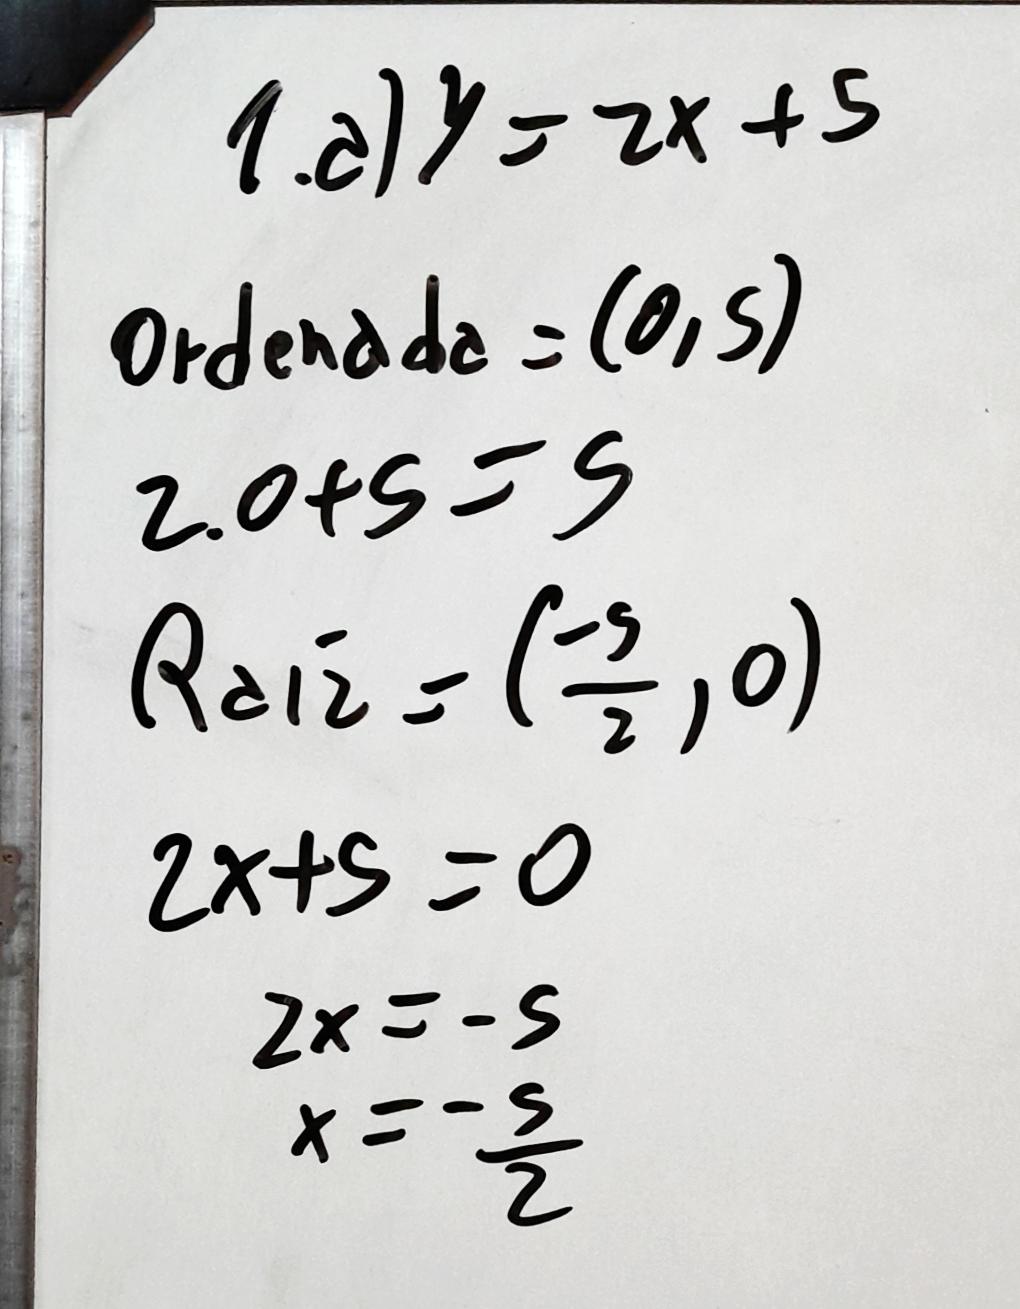 1.a) y = 2x + 5
Ordenada = (0,5)
2.0+5 = 5
Raiz = (-5/2, 0)
2x+5 = 0
2x = -5
x = -5/2